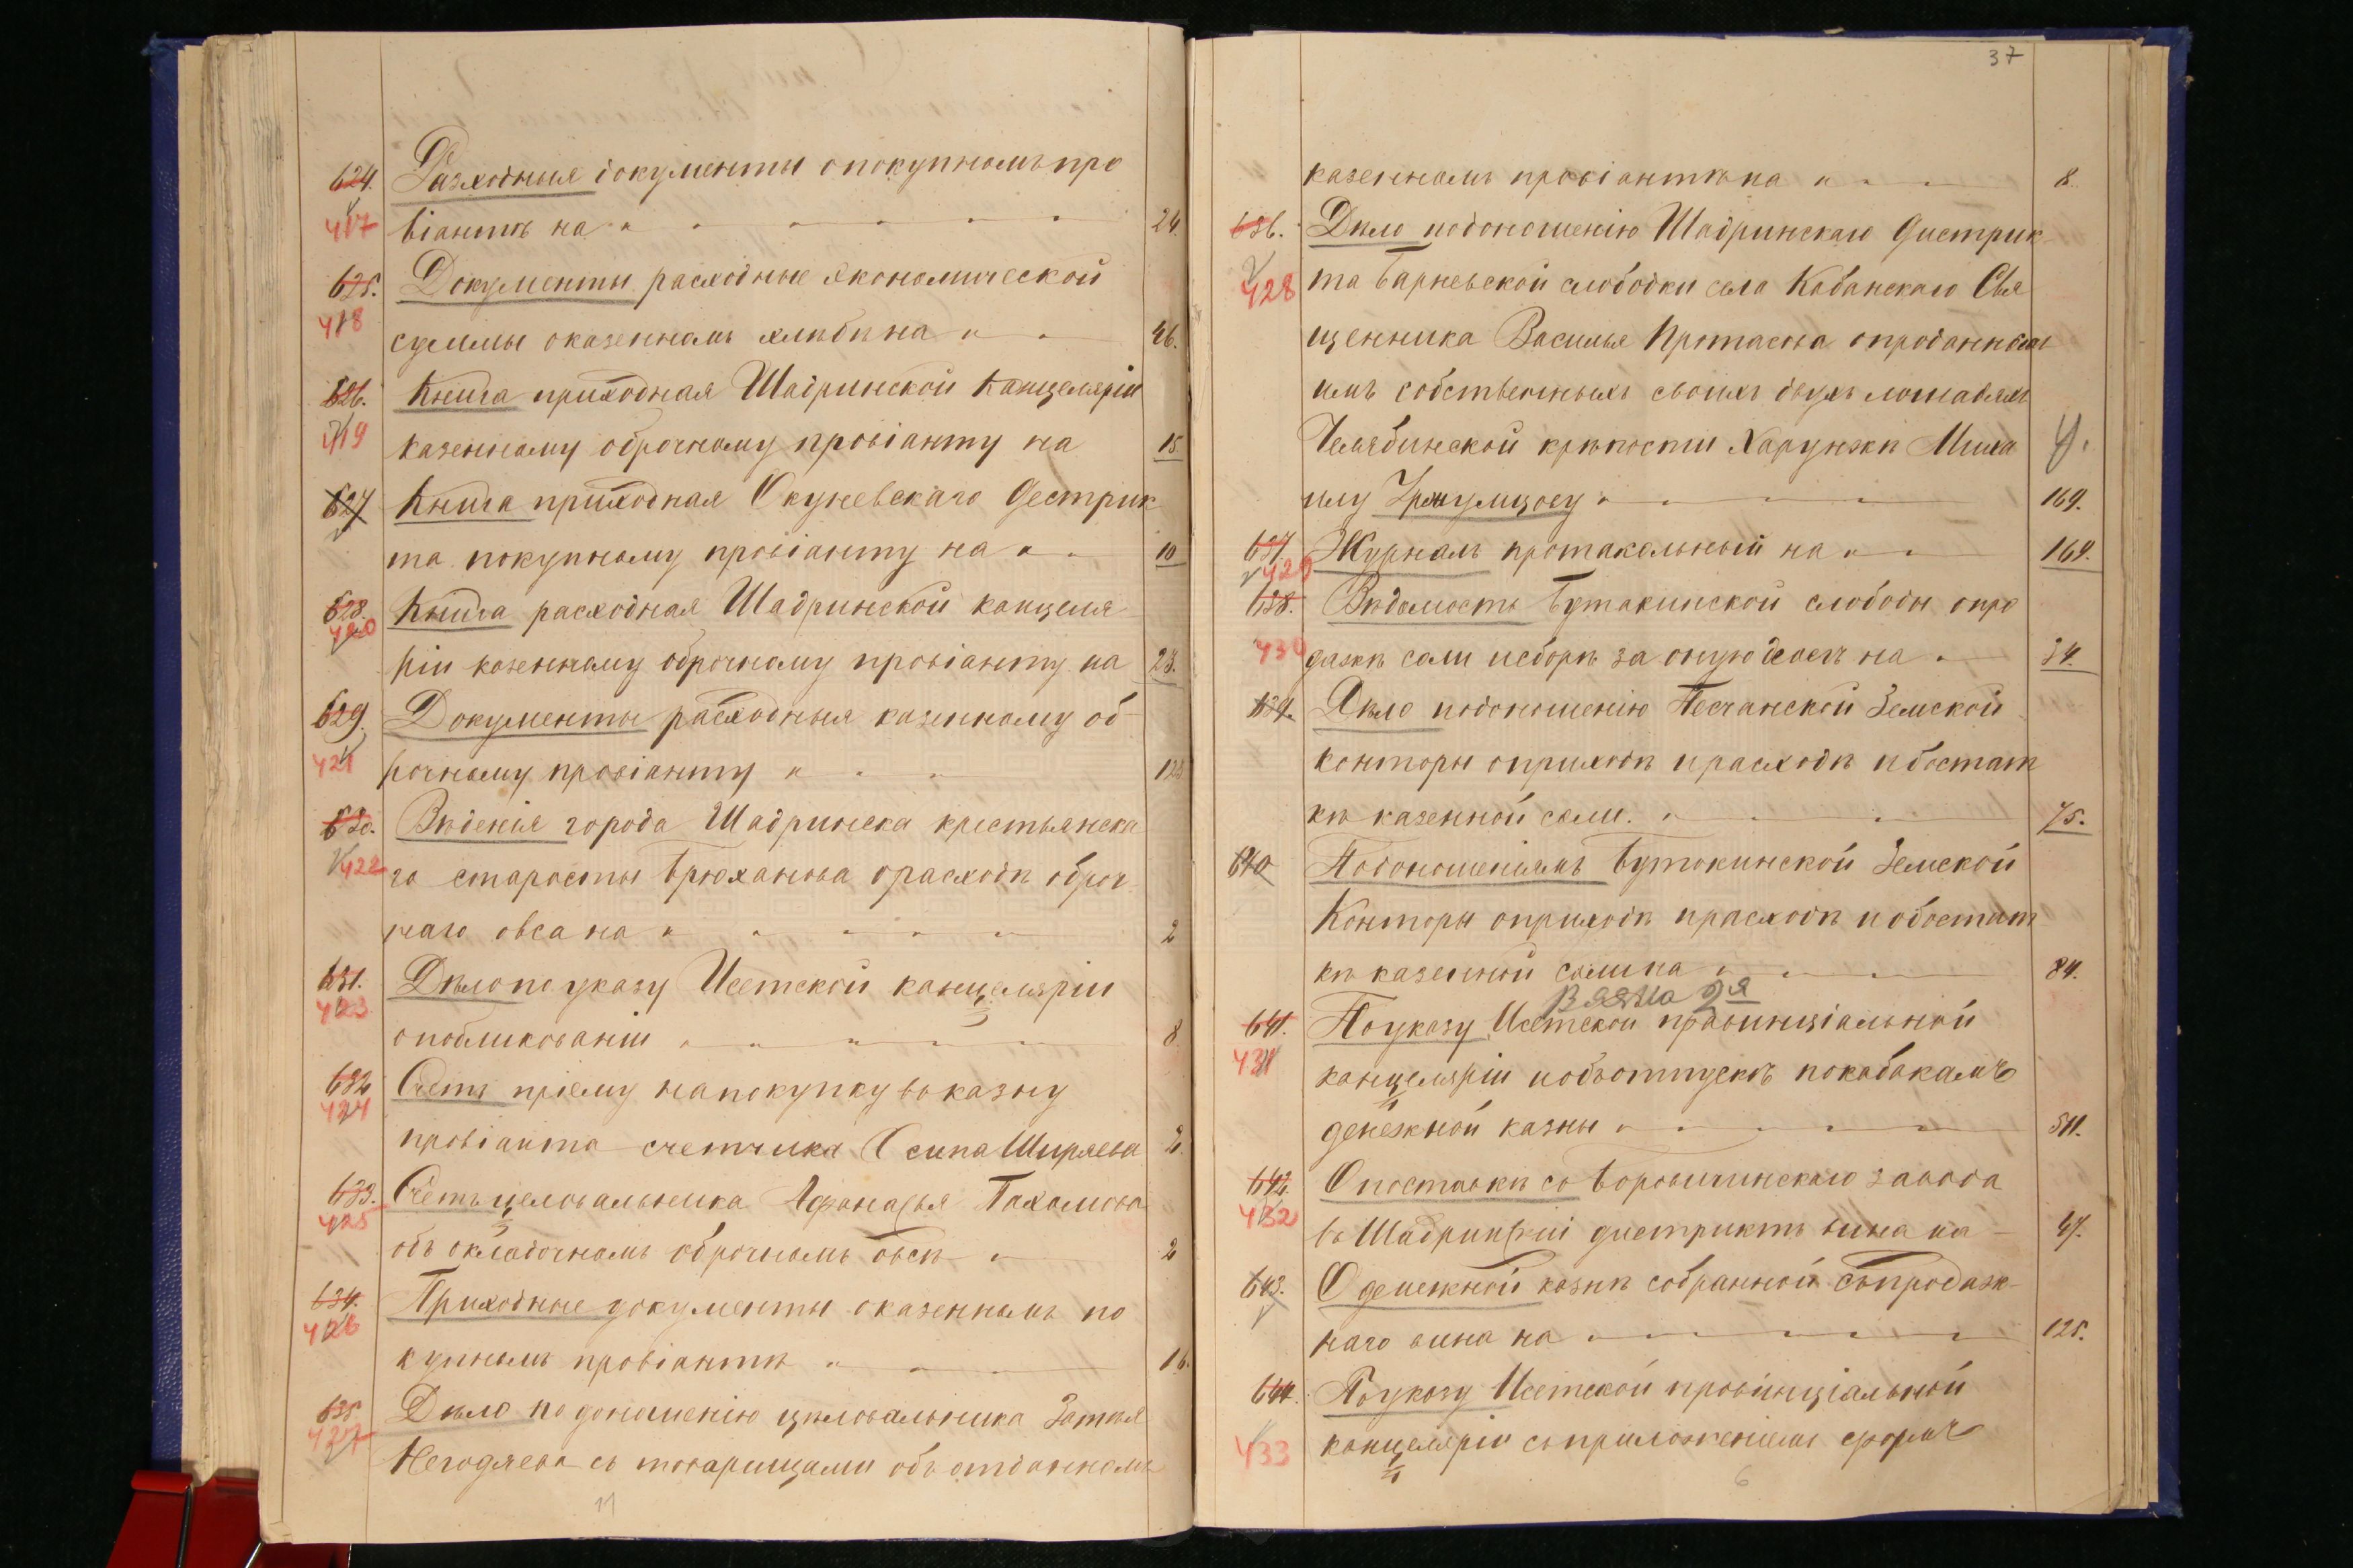 624. Разходныя документы о покупномъ про
417 віантѣ на 24.
625. Документы расходные экономической
418 суммы о казенномъ хлѣбѣ на 46.
626. Книга приходная Шадринской Канцеляріи
419 казенному оброчному провіанту на 15
627 Книга приходная Окуневскаго Дестрик
та покупному провіанту на 10
628. Книга расходная Шадринской канцеля
420 ріи казенному оброчному провіанту на 23.
629. Документы расходныя казенному об-
421 рочному провіанту
630. Вѣденія города Шадринска крестьянска
422 го старосты Брюханова о расходѣ оброч
наго овса на 2
631. Дѣло по указу Исетской канцеляріи
423 о побликованіи 8
632 Счетъ пріему на покупку въ казну
424 провіанта счетчика Осипа Ширяева 2.
633. Счетъ целовальника Афанасья Пахомова
425 объ окладочномъ оброчномъ овсѣ 2
634. Приходные документы о казенномъ по
426 купномъ провіантѣ 16.
635 Дѣло по доношенію цѣловальника
427 Негодяева съ товарищами объ отданномъ
37
казенномъ провіантѣ на 8.
636. Дѣло по доношенію Шадринскаго Дистрик
428 та Барневской слободки села Кабанскаго Свя
щенника Василья Протасова о проданныхъ
имъ собственныхъ своихъ двухъ лошадяхъ
Челябинской крѣпости Харунжи Миха
илу 169.
637. Журналъ протакольный на 169.
429
638. Вѣдомость Бутакинской слободы о про
430 дажѣ соли и сборѣ за оную денегъ на 34.
639. Дѣло по доношенію Песчанской Земской
конторы о приходѣ и расходѣ и въ остат
кѣ казенной соли. 75.
640 По доношеніямъ Бутокинской Земской
Конторы о приходѣ и расходѣ и об остат
кѣ казенной соли на 84.
641. По указу Исетской правинціальной
431 канцеляріи и объ отпускѣ по кабакамъ
денежной казны 511.
642. О поставкѣ со Боровлянскаго завода
432 въ Шадринскій дистриктъ вина на 47.
643. О денежной казнѣ собранной съ продаж-
наго вина на 125.
644. По указу Исетской провинціальной
433 канцеляріи съ приложеніемъ формъ
6